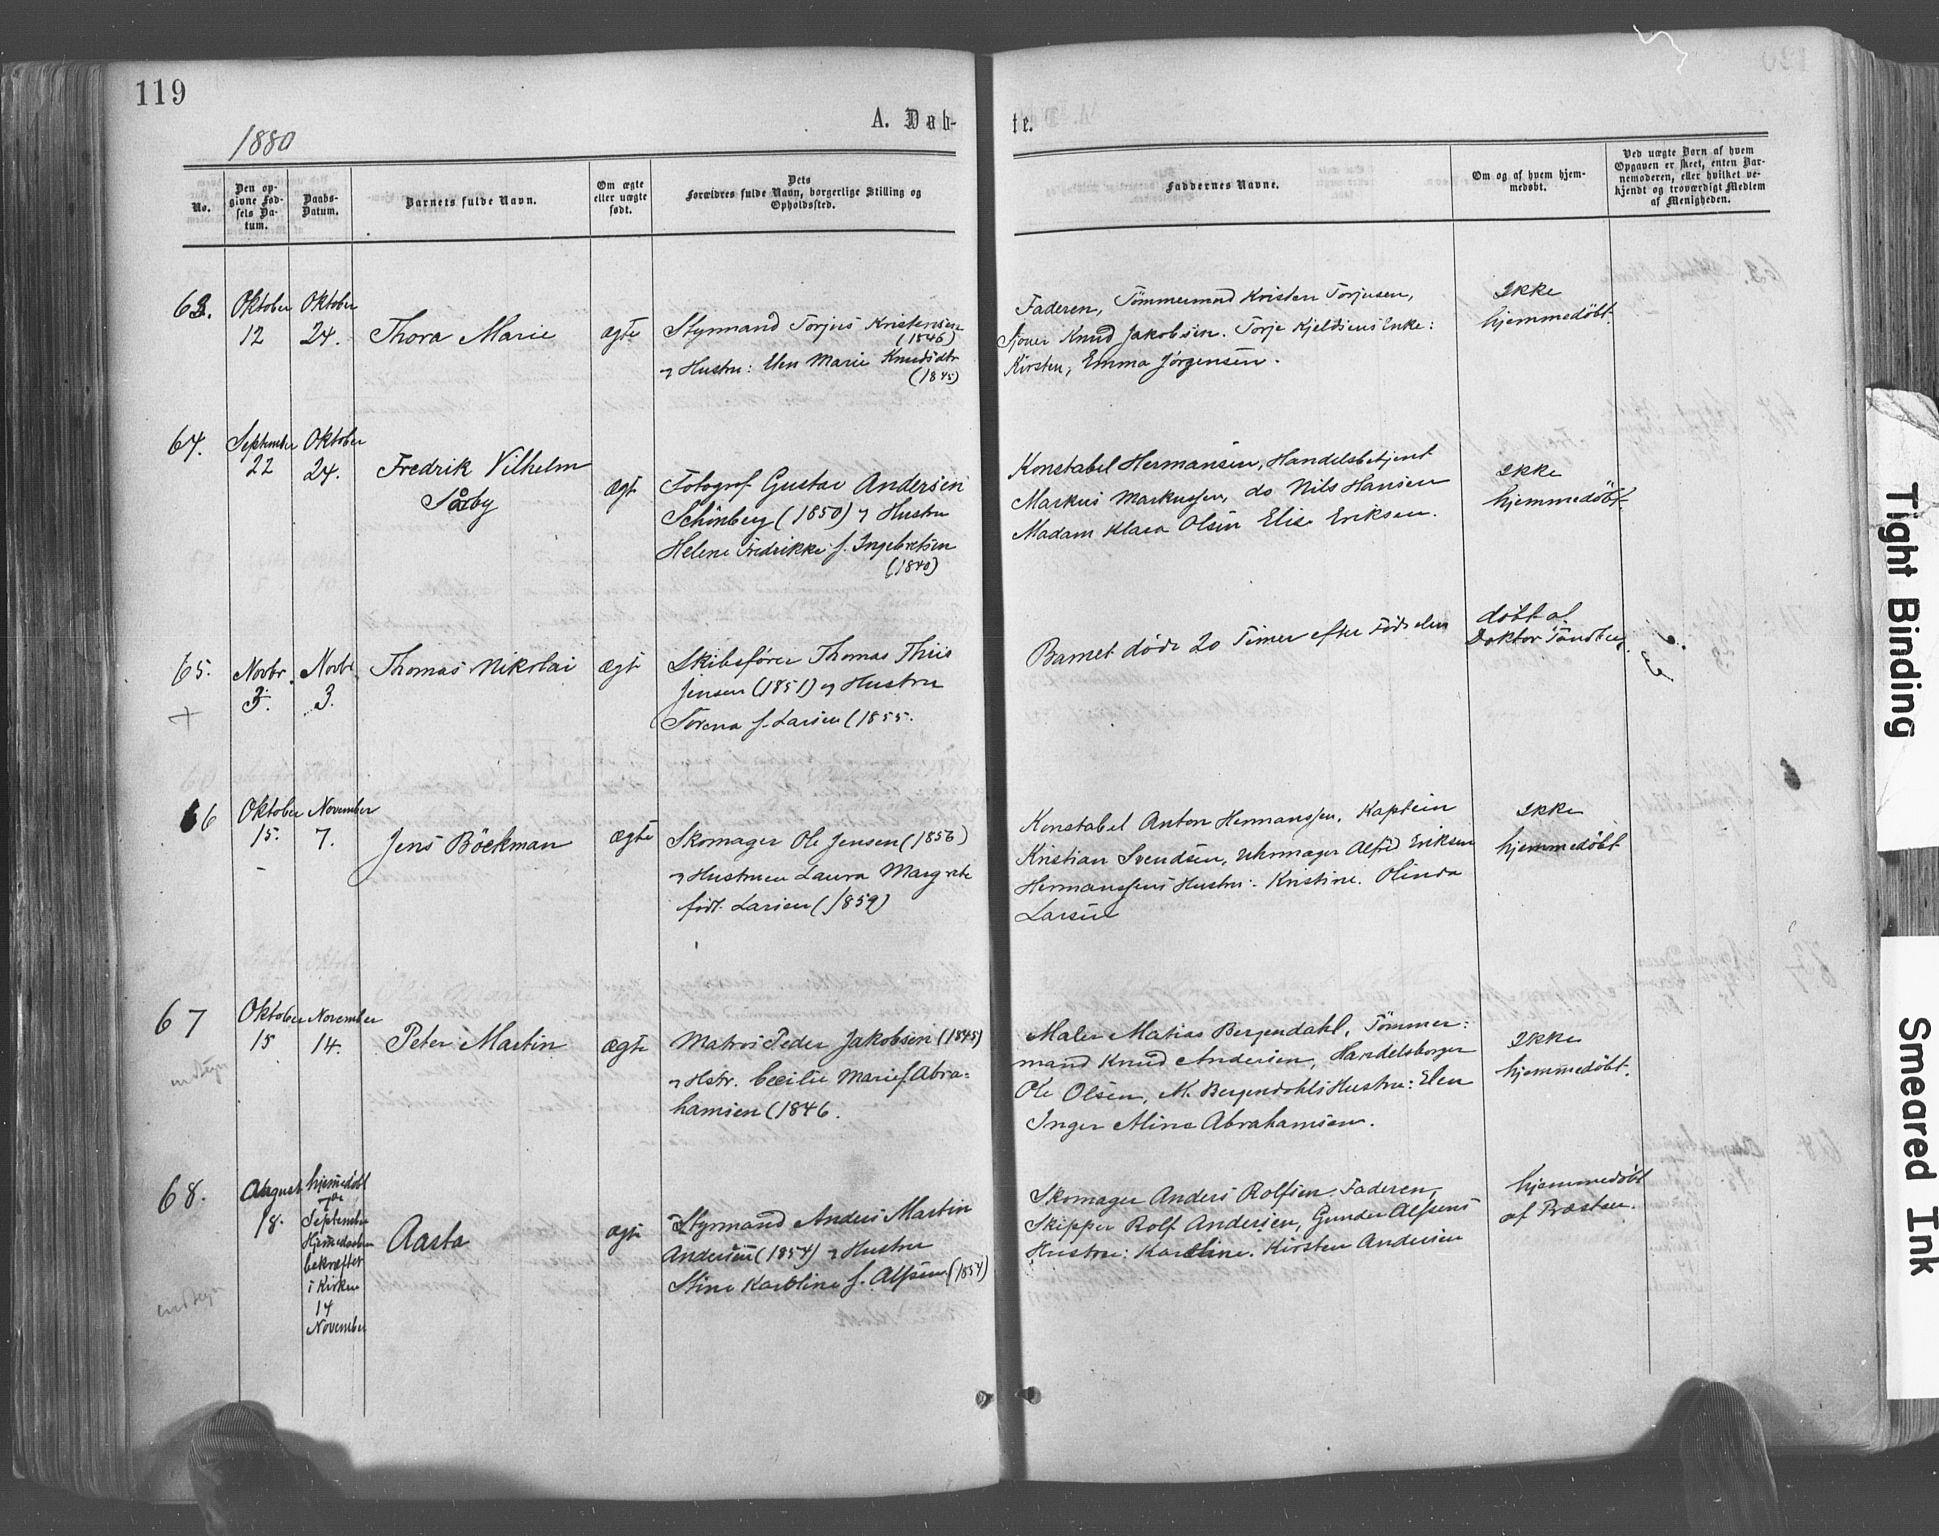 119
A. Døb-
te.
1880
No.
Den op-
givne Fød-
sels Da-
tum.
Daabs-
Datum.
Barnets fulde Navn.
Om ægte
eller uægte
født.
Dets
Forældres fulde Navn, borgerlige Stilling og
Opholdssted.
Faddernes Navne.
Om og af hvem hjem-
medøbt.
Ved uægte Børn af hvem
Opgaven er skeet, enten Bar-
nemoderen, eller hvilket be-
kjendt og troværdigt Medlem
af Menigheden.
63.
Oktober
12
Oktober
24.
Thora Marie
ægte
Styrmand Torjus Kristensen
(1846)
og Hustru: Marie Knudsdtr
(1845)
Faderen, Tömmermand Kristen Torjusen,
Knud Jakobsen. Torje Kjeldsens Enke:
Kirsten, Emma Jørgensen.
Ikke
hjemmedøbt.
64.
September
22
Oktober
24.
Fredrik Vilhelm
Sørby
ægt
Fotograf Gustav Andersen
Schönberg (1850) og Hustru
Helene Fredrikke f. Ingebretsen
(1840)
Konstabel Hermansen, Handelsbetjent
Markus Markussen, do Nils Hansen
Madam Klara Olsen Elise Eriksen.
Ikke
hjemmedøbt.
65.
+
Novbr.
3.
Novbr
3.
Thomas Nikolai
ægt
Skibsfører Thomas Thiis
Jensen (1851) og Hustru
Sorena f. Larsen (1855.
Barnet døde 20 Timer efter Fødselen
døbt af
Doktor Tandberg
66
Oktober
15.
November
7.
Jens Böckman
ægte
Skomager Ole Jensen (1856)
og Hustruen Laura Margrete
født. Larsen (1859)
Konstabel Anton Hermanssen, Kaptein
Kristian Svendsen, Uhrmager Alfred Eriksen
Hermanssens Hustru: Kristine. Olinda
Larsen
Ikke
hjemmedøbt
67
Oktober
15
November
14.
Peter Martin
ægte
Matros Peder Jakobsen (1845)
og Hstr. Cecilie Marie f. Abra-
hamsen (1846.
Maler Matias Bergendahl, Tömmer-
mand Knud Andersen, Handelsborger
Ole Olsen, M. Bergendahls Hustru: Elen
Inger Aline Abrahamsen.
Ikke
hjemmedøbt.
68.
August
18.
hjemmedøbt
7de
September
Hjemmedaaben
bekræftet
i Kirken
14
November
Aasta
ægte
Styrmand Anders Martin
Andersen (1854) og Hustru
Stine Karoline f. Alfsen (1854)
Skomager Anders Rolfsen. Faderen,
Skipper Rolf Andersen, Gunder Alfsens
Hustru: Karoline. Kirsten Andersen
hjemmedøbt
af Præsten.
Tight Binding
Smeared Ink